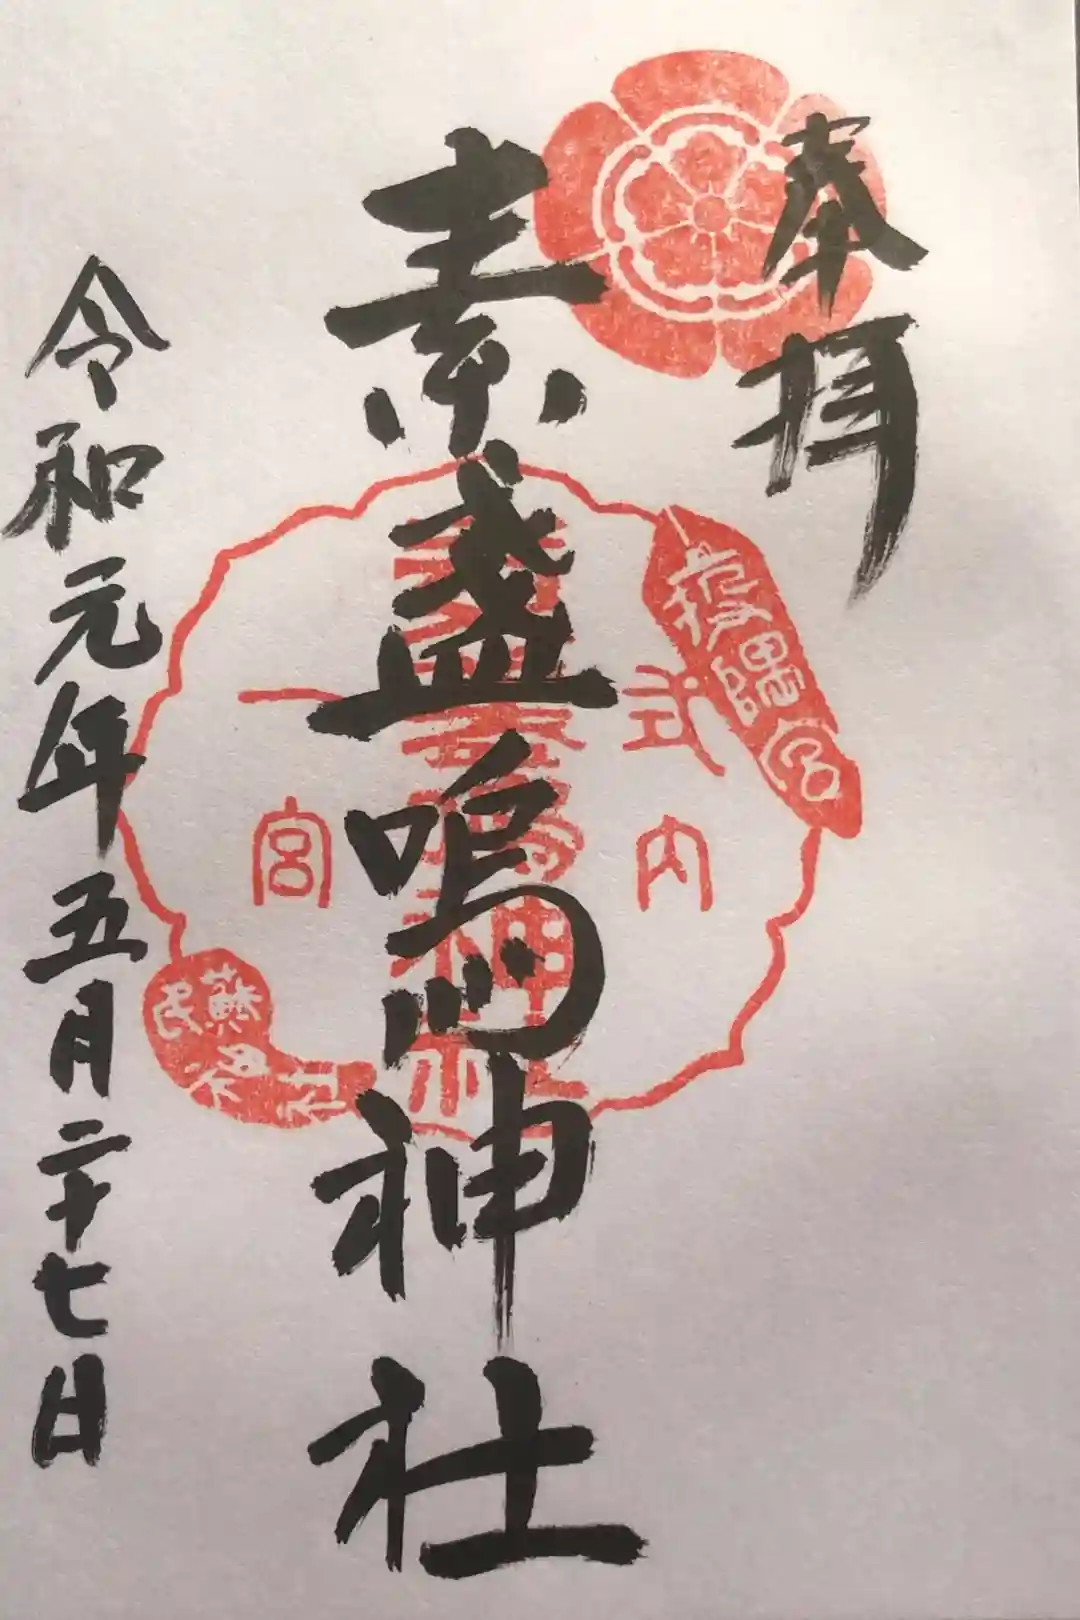 奉拝
素盞嗚神社
令和元年五月二十七日
式内
疫隅
一宮
蘇民
神社